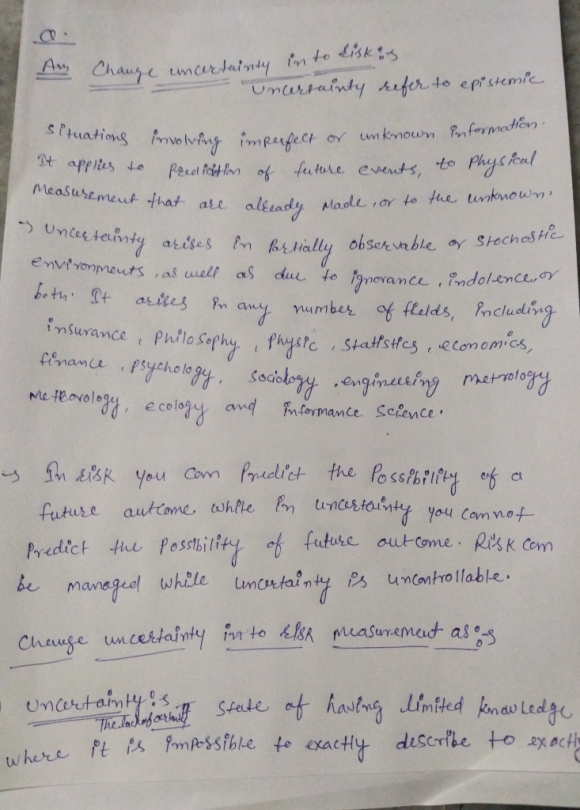 Q.
Ans Change uncertainty in to Risk :-
Uncertainty refer to epistemic
situations involving imperfect or unknown information.
It applies to Prediction of future events, to physical
measurement that are already Made, or to the unknown.
→ Uncertainty arises in Partially observable or stochastic
environments, as well as due to ignorance, indolence, or
both. It arises in any number of fields, including
insurance, philosophy, physic, statistics, economics,
finance, psychology, sociology, engineering metrology
meteorology, ecology and informance science.
→ In risk you can Predict the Possibility of a
future outcome while in uncertainty you cannot
Predict the possibility of future outcome. Risk can
be managed while uncertainty is uncontrollable.
Change uncertainty in to Risk measurement as :-
Uncertainty :- state of having limited knowledge
The lack of certainty
where it is impossible to exactly describe to exactly